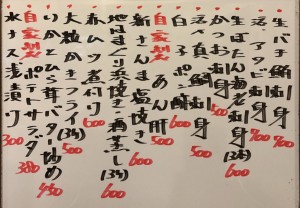 生バチ鮪刺身 700
活〆アワビ刺身 900
生ぼたん海老刺身(3本) 600
かつお刺身 500
活〆真鯛刺身 500
白子ポン酢 600
自家製あん肝
新さんま塩焼き 600
地はまぐり浜焼き・酒蒸し(3ケ) 600
赤ムツ煮付け 600
大粒かきフライ(3ケ) 500
いかとひら茸バター炒め 450
自家製ポテトサラダ 380
水ナス浅漬け 300